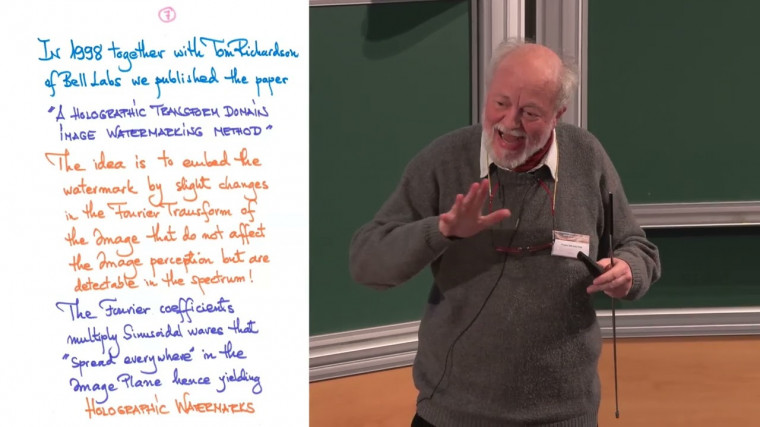 7
In 1998 together with Tom Richardson
of Bell Labs we published the paper
"A HOLOGRAPHIC TRANSFORM DOMAIN
IMAGE WATERMARKING METHOD"
The idea is to embed the
watermark by slight changes
in the Fourier Transform of
the Image that do not affect
the Image perception but are
detectable in the spectrum!
The Fourier coefficients
multiply Sinusoidal waves that
"Spread everywhere" in the
Image Plane hence yielding
HOLOGRAPHIC WATERMARKS